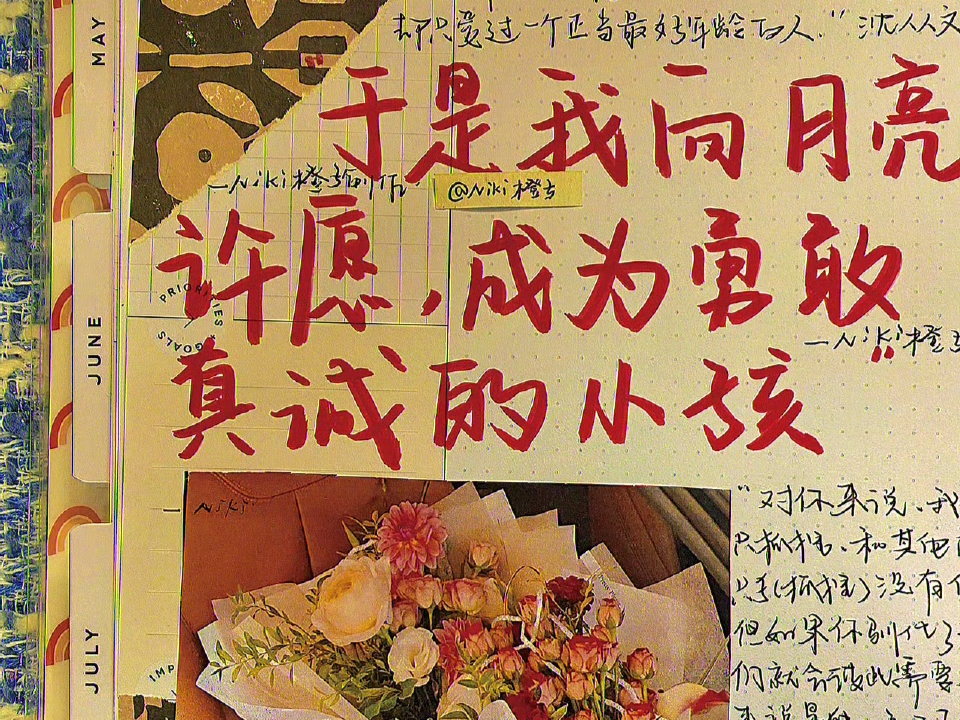 却只爱过一个正当最好年龄的人。” 沈从文
于是我向月亮
—Niki橙吉创作
@Niki橙吉
许愿,成为勇敢
—Niki橙吉
真诚的小孩
MAY
JUNE
JULY
PRIORITIES + GOALS
Niki
“对你来说、我
只狐狸、和其他
只(狐狸)没有什
但如果你驯化了
们就会彼此需要
IMP